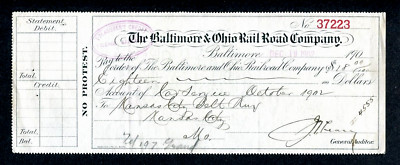 Statement
Debit.
Total.
Credit.
Total.
Bal.
NO PROTEST.
No 37223
The Baltimore & Ohio Rail Road Company.
Baltimore 190
Pay to the
Order of The Baltimore and Ohio Railroad Company $ 18 00
Eighteen Dollars
Account of Car Service October 1902
To Kansas City Belt Rwy
Kansas City
Mo.
General Auditor.